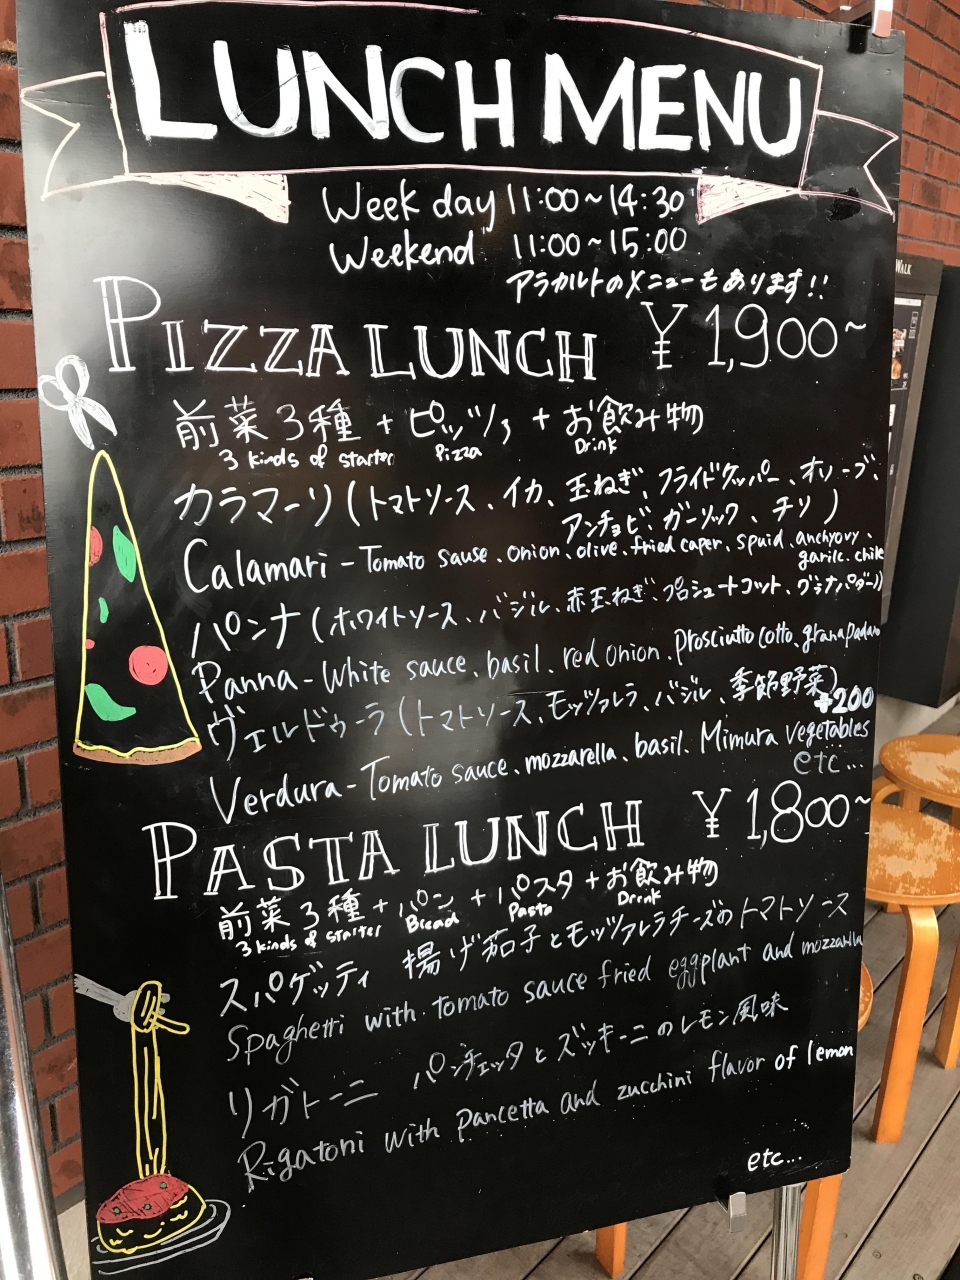 LUNCH MENU
Week day 11:00~14:30
Weekend 11:00~15:00
アラカルトのメニューもあります!!
PIZZA LUNCH ¥1,900~
前菜3種+ピッツァ+お飲み物
3 kinds of starter Pizza Drink
カラマーリ(トマトソース、イカ、玉ねぎ、フライドケッパー、オリーブ、
アンチョビ、ガーリック、チリ)
Calamari - Tomato sause、onion、olive、fried caper、spuid、anchyovy、
garilc、chile
パンナ(ホワイトソース、バジル、赤玉ねぎ、プロシュートコット、グラナパダーノ)
Panna - White sauce、basil、red onion、prosciutto cotto、grana padano
ヴェルドゥーラ(トマトソース、モッツァレラ、バジル、季節野菜)
+200
Verdura - Tomato sauce、mozzarella、basil、Mimura vegetables
etc...
PASTA LUNCH ¥1,800~
前菜3種+パン+パスタ+お飲み物
3 kinds of starter Bread Pasta Drink
スパゲッティ 揚げ茄子とモッツァレラチーズのトマトソース
Spaghetti with tomato sauce fried eggplant and mozzarella
リガトーニ パンチェッタとズッキーニのレモン風味
Rigatoni with pancetta and zucchini flavor of lemon
etc...
WALK